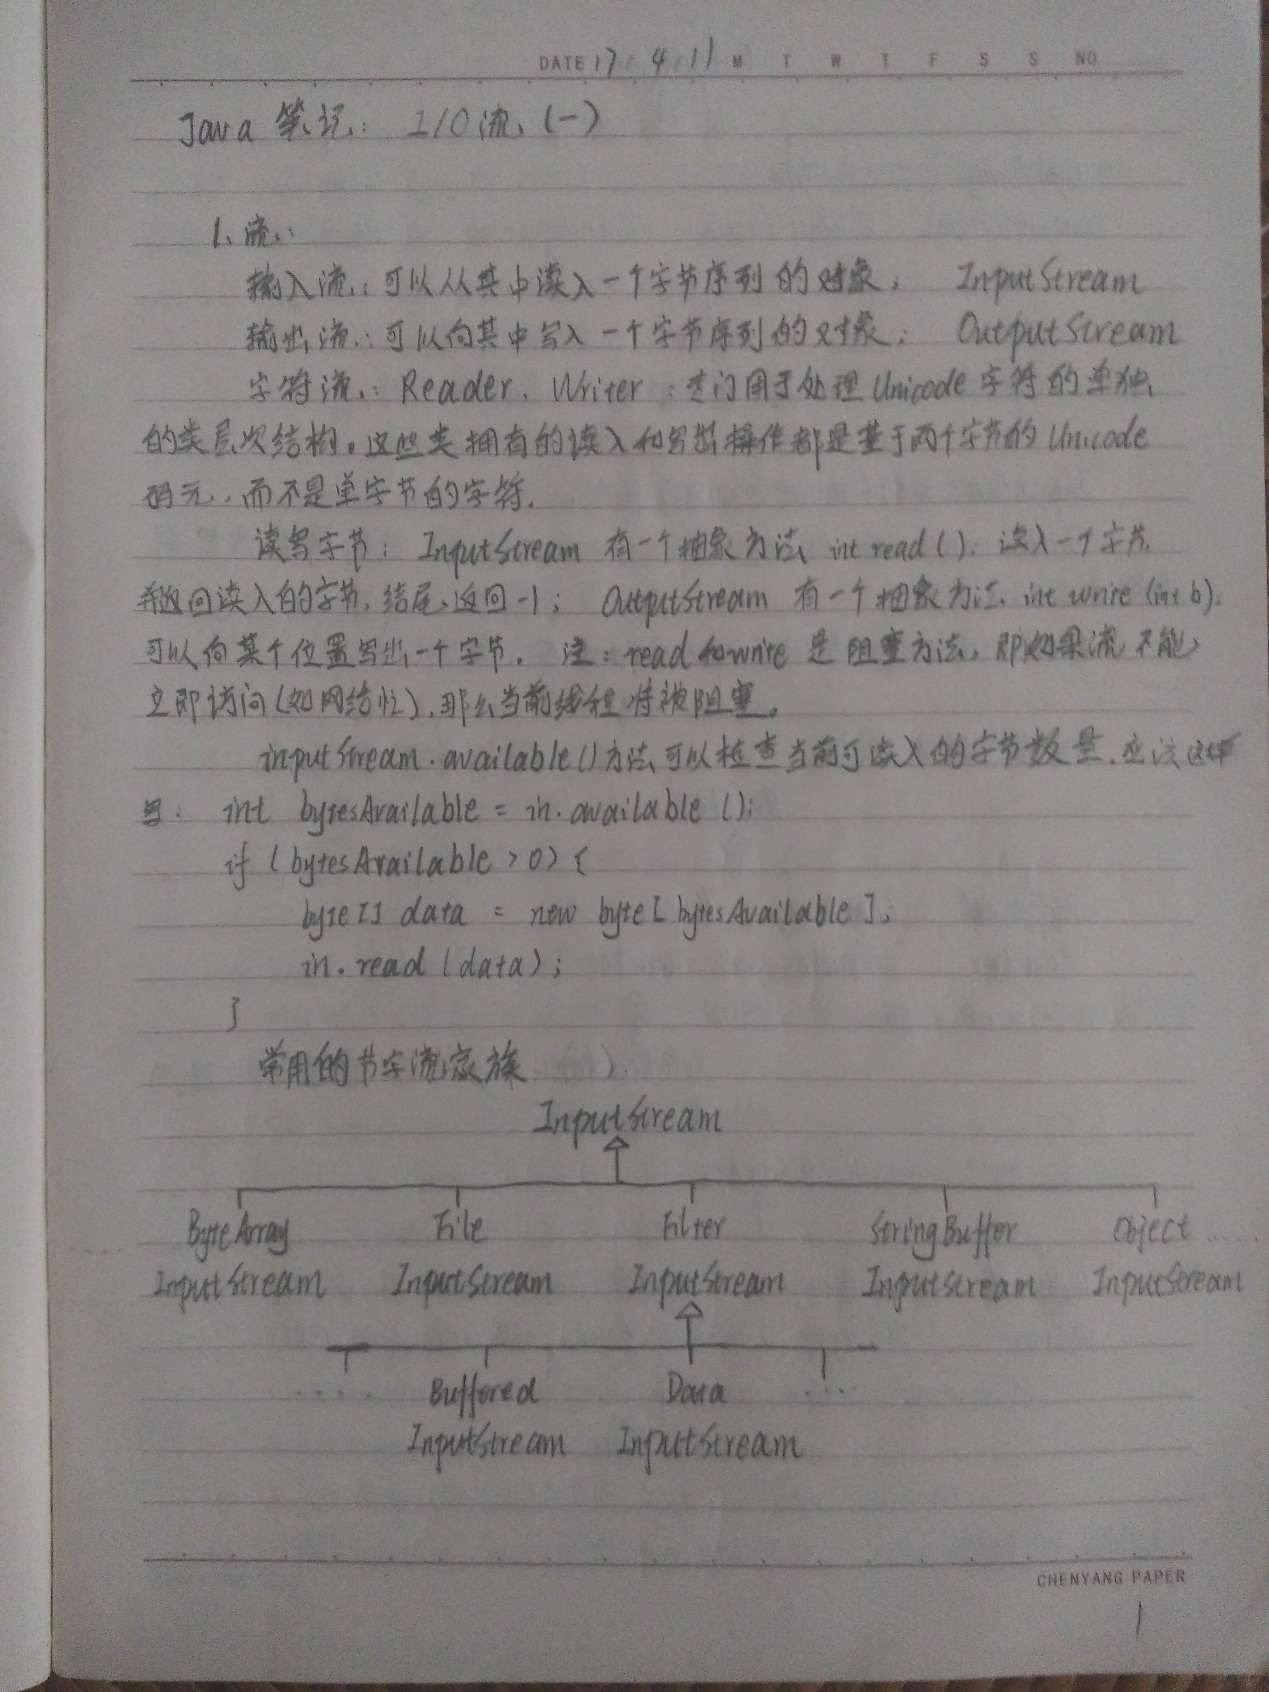 DATE 17.4.11 M T W T F S S NO
Java 笔记： I/O流（一）
1、流：
输入流：可以从其中读入一个字节序列的对象； InputStream
输出流：可以向其中写入一个字节序列的对象； OutputStream
字符流：Reader、Writer：专门用于处理Unicode字符的单独
的类层次结构。这些类拥有的读入和写出操作都是基于两个字节的Unicode
码元，而不是单字节的字符.
读写字节：InputStream 有一个抽象方法 int read()，读入一个字节，
并返回读入的字节，结尾返回-1； OutputStream 有一个抽象方法 int write(int b)，
可以向某个位置写出一个字节． 注：read和write是阻塞方法，即如果流不能
立即访问(如网络忙)，那么当前线程将被阻塞。
inputStream.available()方法可以检查当前可读入的字节数量，应该这样
写： int bytesAvailable = in.available();
if (bytesAvailable > 0) {
byte[] data = new byte[bytesAvailable];
in.read(data);
}
常用的节字流家族
InputStream
ByteArray File Filter StringBuffer Object ......
InputStream InputStream InputStream InputStream InputStream
.... Buffered Data ....
InputStream InputStream
CHENYANG PAPER
1